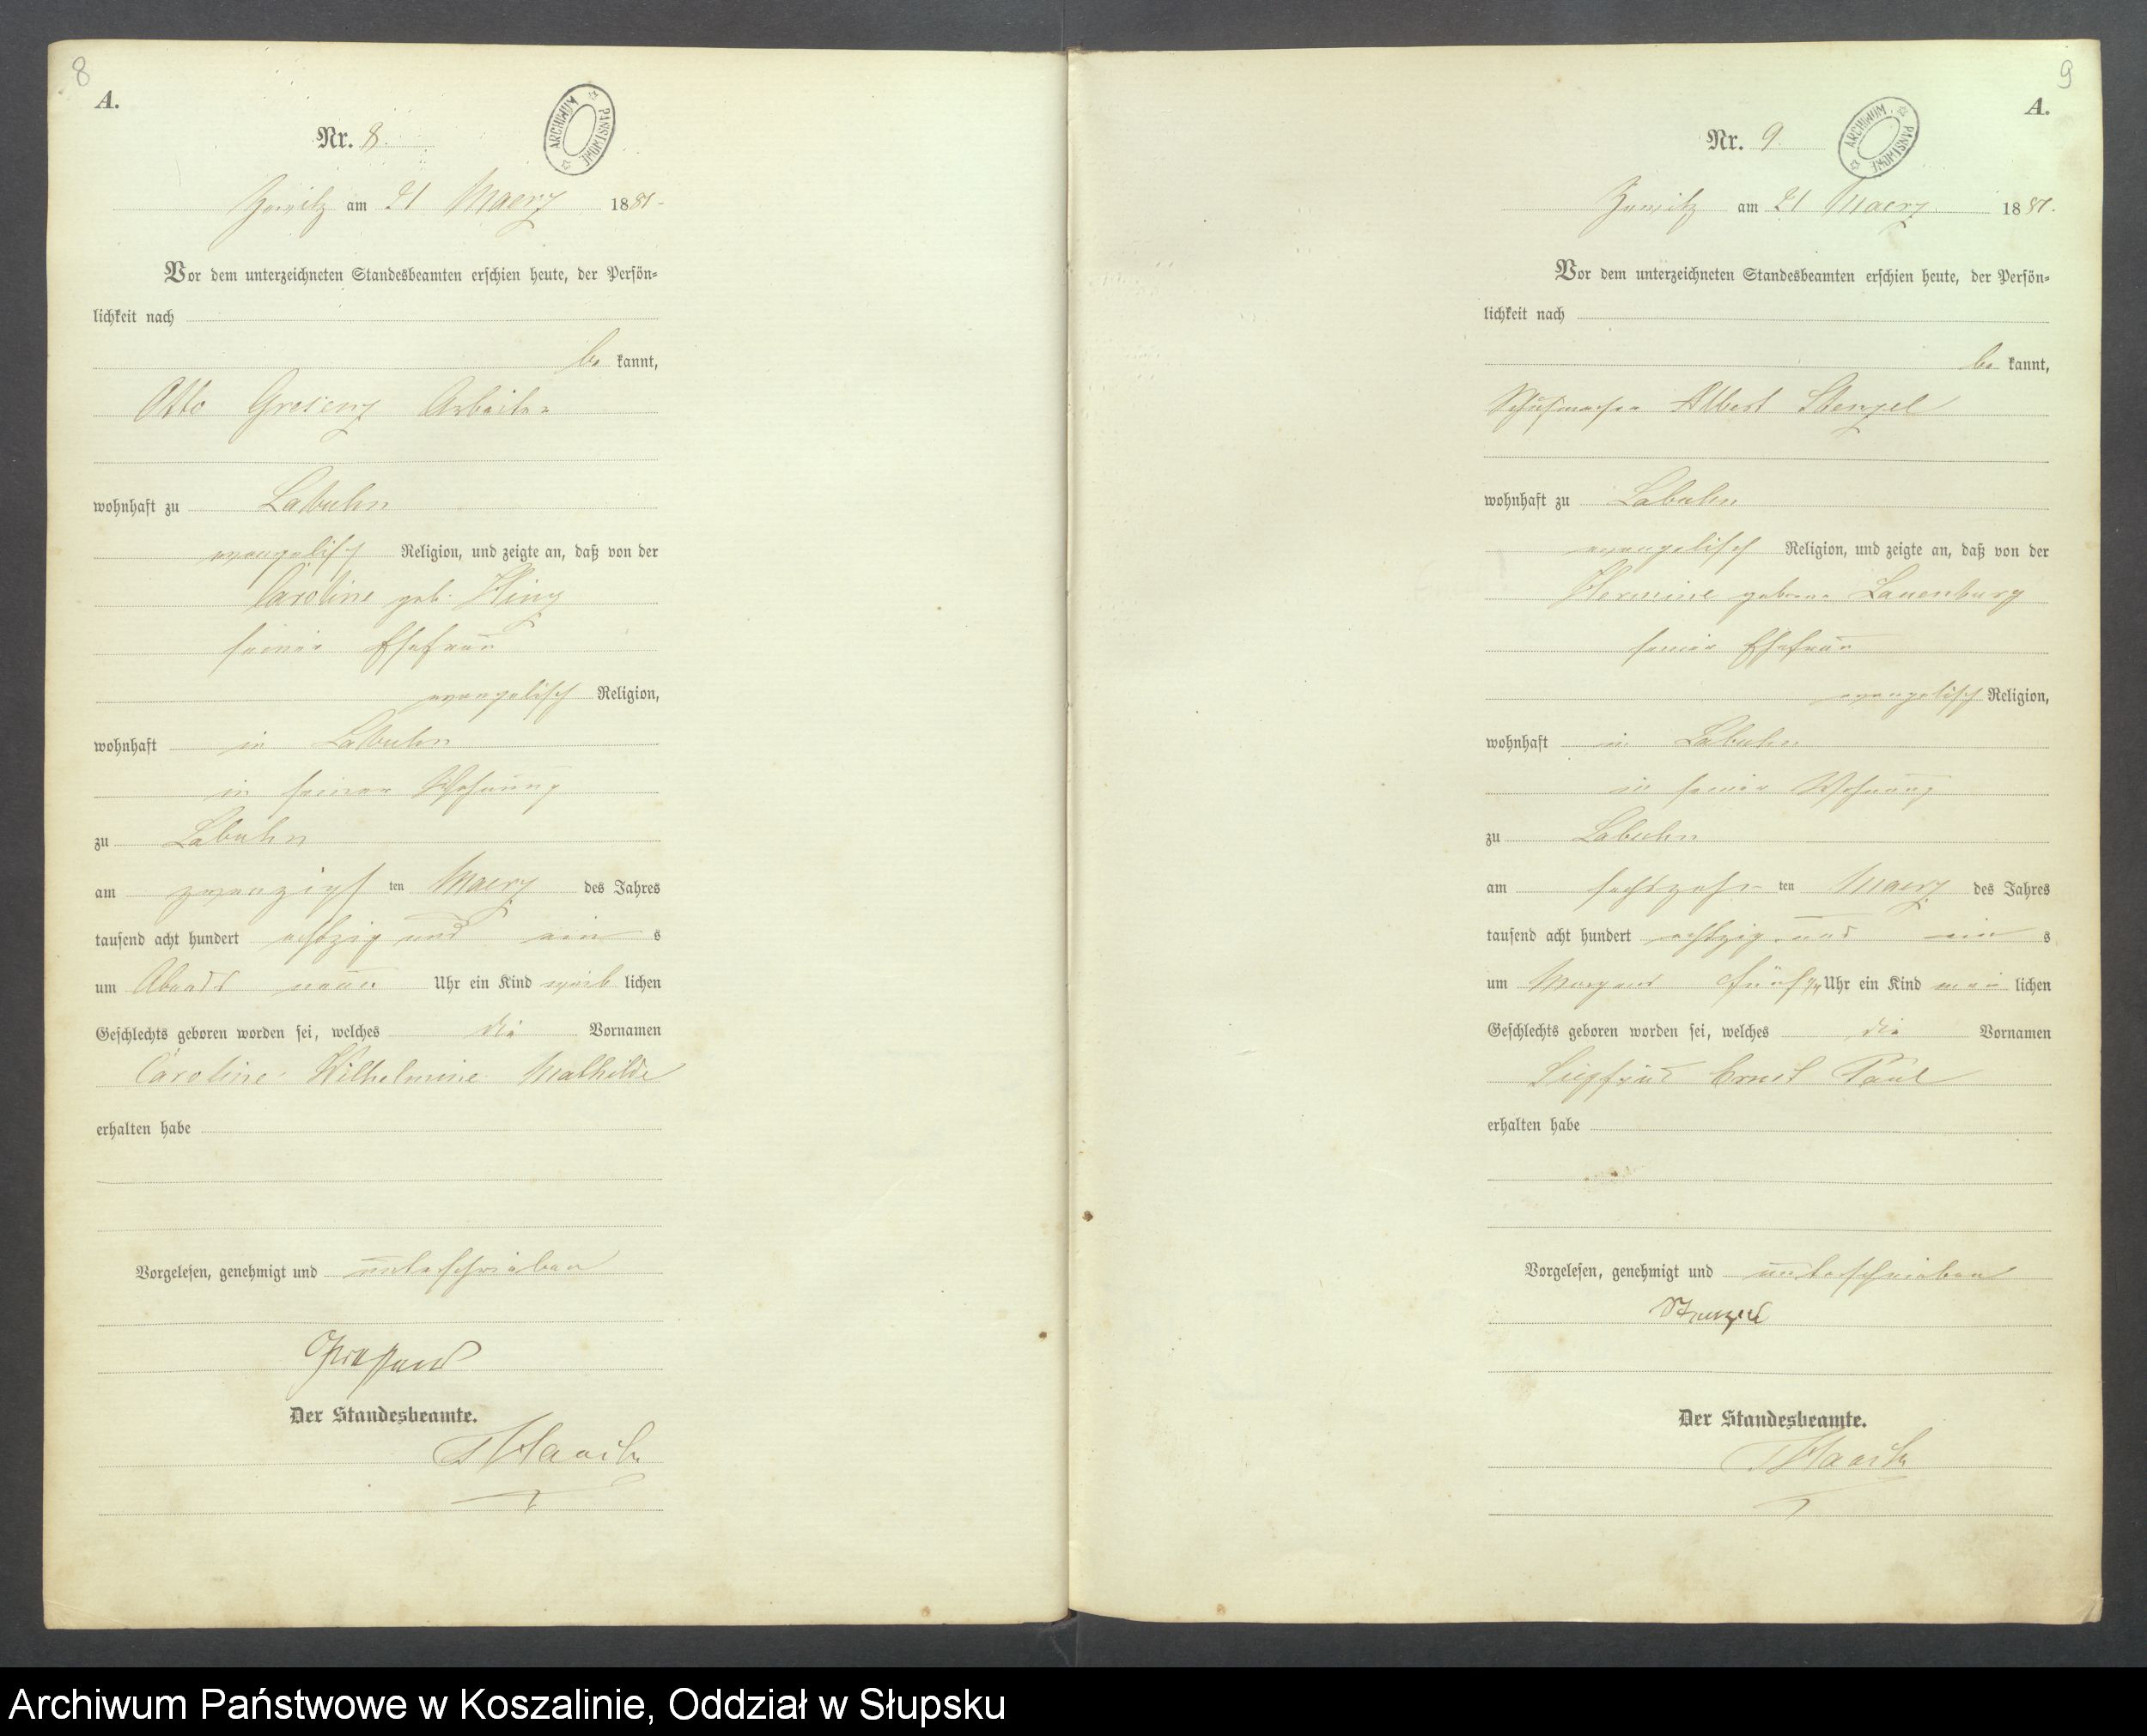 8
A.
ARCHIWUM PAŃSTWOWE
Nr. 8.
am 21 Maerz 1881.
Vor dem unterzeichneten Standesbeamten erschien heute, der Persön=
lichkeit nach
be kannt,
Otto Gresenz Arbeiter
wohnhaft zu Labuhn
evangelisch Religion, und zeigte an, daß von der
Caroline geb.
seiner Ehefrau
evangelisch Religion,
wohnhaft in Labuhn
in seiner Wohnung
zu Labuhn
am zwanzigs ten Maerz des Jahres
tausend acht hundert achtzig und ein s
um Abends neun Uhr ein Kind weib lichen
Geschlechts geboren worden sei, welches die Vornamen
Caroline Wilhelmine Mathilde
erhalten habe
Vorgelesen, genehmigt und unterschrieben
Der Standesbeamte.
9
A.
ARCHIWUM PAŃSTWOWE
Nr. 9.
am 21 Maerz 1881.
Vor dem unterzeichneten Standesbeamten erschien heute, der Persön=
lichkeit nach
be kannt,
Schuhmacher Albert Stenzel
wohnhaft zu Labuhn
evangelisch Religion, und zeigte an, daß von der
Hermine geborne Lauenburg
seiner Ehefrau
evangelisch Religion,
wohnhaft in Labuhn
in seiner Wohnung
zu Labuhn
am ten Maerz des Jahres
tausend acht hundert achtzig und ein s
um Morgens fünf Uhr ein Kind lichen
Geschlechts geboren worden sei, welches die Vornamen
Siegfried Ernst Paul
erhalten habe
Vorgelesen, genehmigt und unterschrieben
Stenzel
Der Standesbeamte.
Archiwum Państwowe w Koszalinie, Oddział w Słupsku